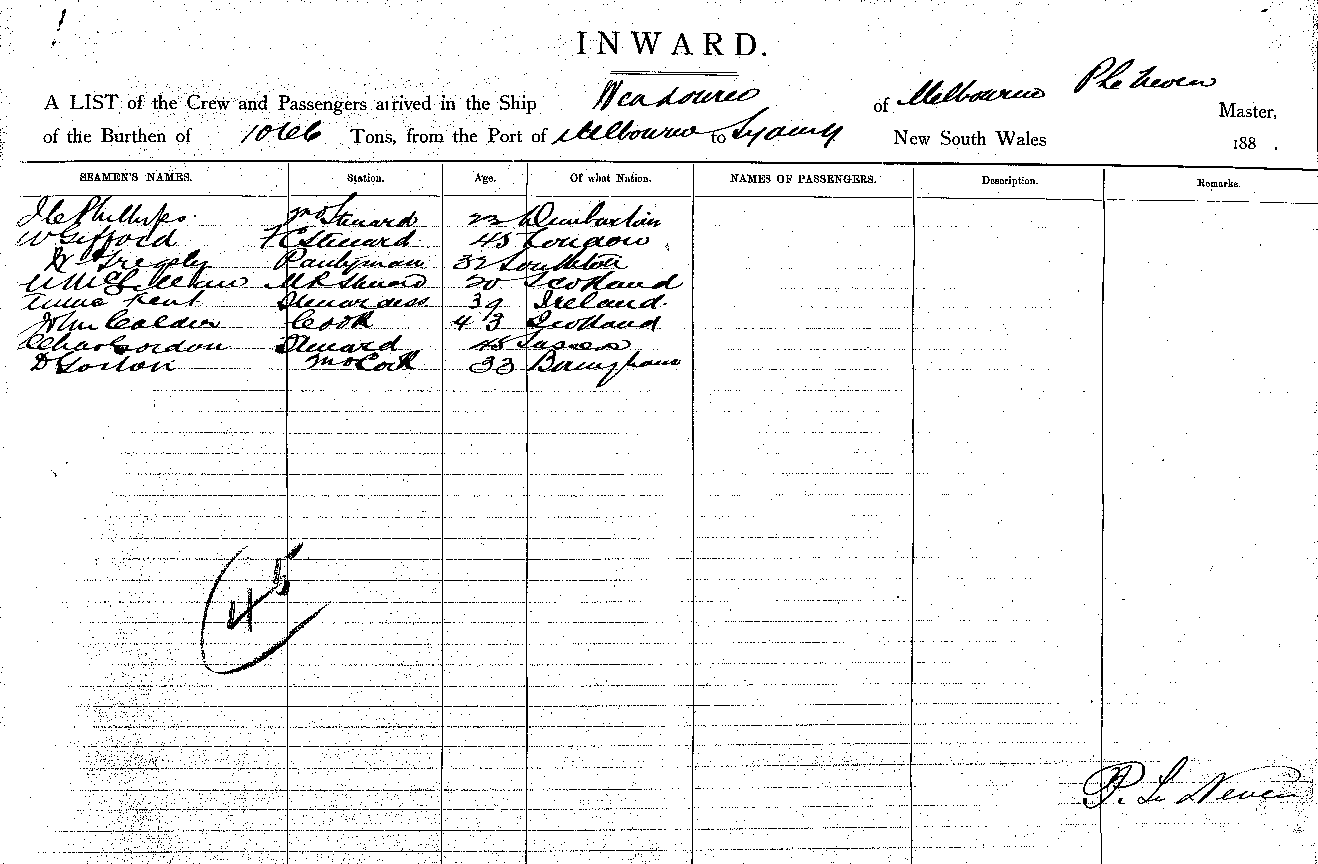 INWARD.
A LIST of the Crew and Passengers arrived in the Ship Wendouree of Melbourne P Le Neven Master,
of the Burthen of 1066 Tons, from the Port of Melbourne to Sydney New South Wales 188 .
SEAMEN'S NAMES. Station. Age. Of what Nation. NAMES OF PASSENGERS. Description. Remarks.
J C Phillips Steward 23 Dumbarton
W Gifford F C Steward 45 London
H Pantryman 32
Steward 20 Scotland
Kent Stewardess 39 Ireland
John Calder Cook 43 Scotland
Chas Gordon Steward 45 Sussex
D Gorton Cook 33 Birmingham
45
P. Le Neven